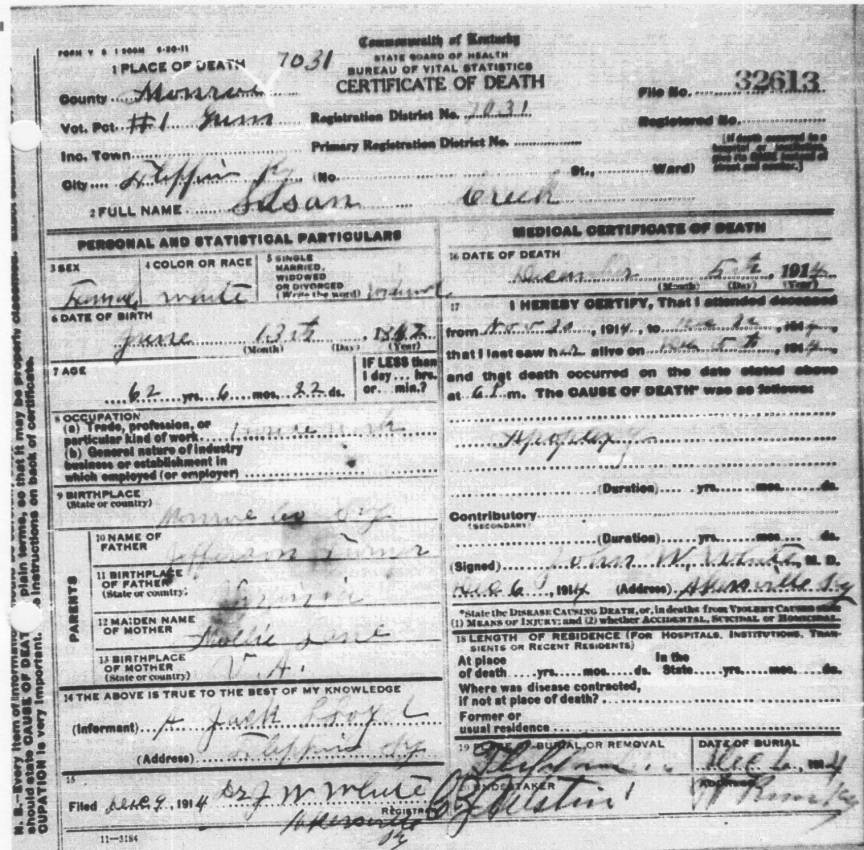 FORM V S 1 200M 6-20-11
1 PLACE OF DEATH 7031
Commonwealth of Kentucky
STATE BOARD OF HEALTH
BUREAU OF VITAL STATISTICS
CERTIFICATE OF DEATH
County Monroe
File No. 32613
Vot. Pct. #1 Gum Registration District No. 7031
Registered No.
Inc. Town Primary Registration District No.
[If death occurred in a
hospital or institution,
give its NAME instead of
street and number.]
City Flippin Ky (No. St., Ward)
2 FULL NAME Susan Creek
PERSONAL AND STATISTICAL PARTICULARS
3 SEX
Female
4 COLOR OR RACE
white
5 SINGLE
MARRIED,
WIDOWED
OR DIVORCED
(Write the word)
6 DATE OF BIRTH
June 13th
(Month) (Day) (Year)
7 AGE
62 yrs. 6 mos. 22 ds.
IF LESS than
1 day... hrs.
or... min.?
8 OCCUPATION
(a) Trade, profession, or
particular kind of work
(b) General nature of industry
business or establishment in
which employed (or employer)
9 BIRTHPLACE
(State or country)
Monroe Co Ky
PARENTS
10 NAME OF
FATHER
Jefferson Turner
11 BIRTHPLACE
OF FATHER
(State or country)
Virginia
12 MAIDEN NAME
OF MOTHER
Mollie Lane
13 BIRTHPLACE
OF MOTHER
(State or country)
V.A.
14 THE ABOVE IS TRUE TO THE BEST OF MY KNOWLEDGE
(Informant) Jack
(Address) Flippin Ky
15
Filed Dec 9, 1914 Dr J W White
REGISTRAR
Akersville
Ky
11—3184
MEDICAL CERTIFICATE OF DEATH
16 DATE OF DEATH
December 5th, 1914
(Month) (Day) (Year)
17 I HEREBY CERTIFY, That I attended deceased
from Nov 30, 1914, to , 1914,
that I last saw her alive on Dec 5th, 1914,
and that death occurred on the date stated above
at 6 P.m. The CAUSE OF DEATH* was as follows:
Apoplexy
(Duration) yrs. mos. ds.
Contributory
(SECONDARY)
(Duration) yrs. mos. ds.
(Signed) John W. White, M. D.
Dec 6, 1914 (Address) Akersville Ky
*State the DISEASE CAUSING DEATH, or, in deaths from VIOLENT CAUSES state
(1) MEANS OF INJURY; and (2) whether ACCIDENTAL, SUICIDAL or HOMICIDAL.
18 LENGTH OF RESIDENCE (FOR HOSPITALS, INSTITUTIONS, TRAN-
SIENTS OR RECENT RESIDENTS)
At place In the
of death yrs. mos. ds. State yrs. mos. ds.
Where was disease contracted,
if not at place of death?
Former or
usual residence
19 PLACE OF BURIAL OR REMOVAL
DATE OF BURIAL
Dec 6, 1914
20 UNDERTAKER
ADDRESS
N. B.—Every item of information
should state CAUSE OF DEATH plain terms, so that it may be properly classified.
OCCUPATION is very important. instructions on back of certificate.